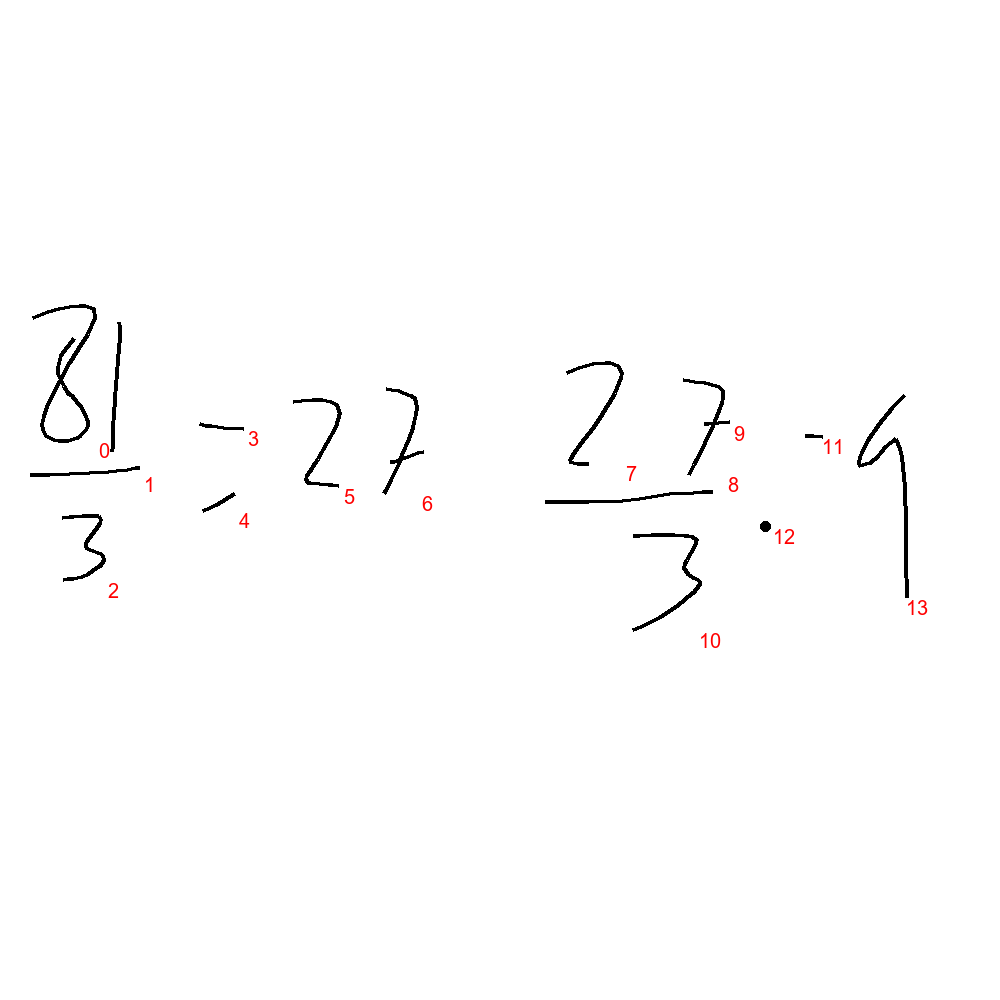 81/3 = 27 27/3 = 9
0 1 2 3 4 5 6 7 8 9 10 11 12 13